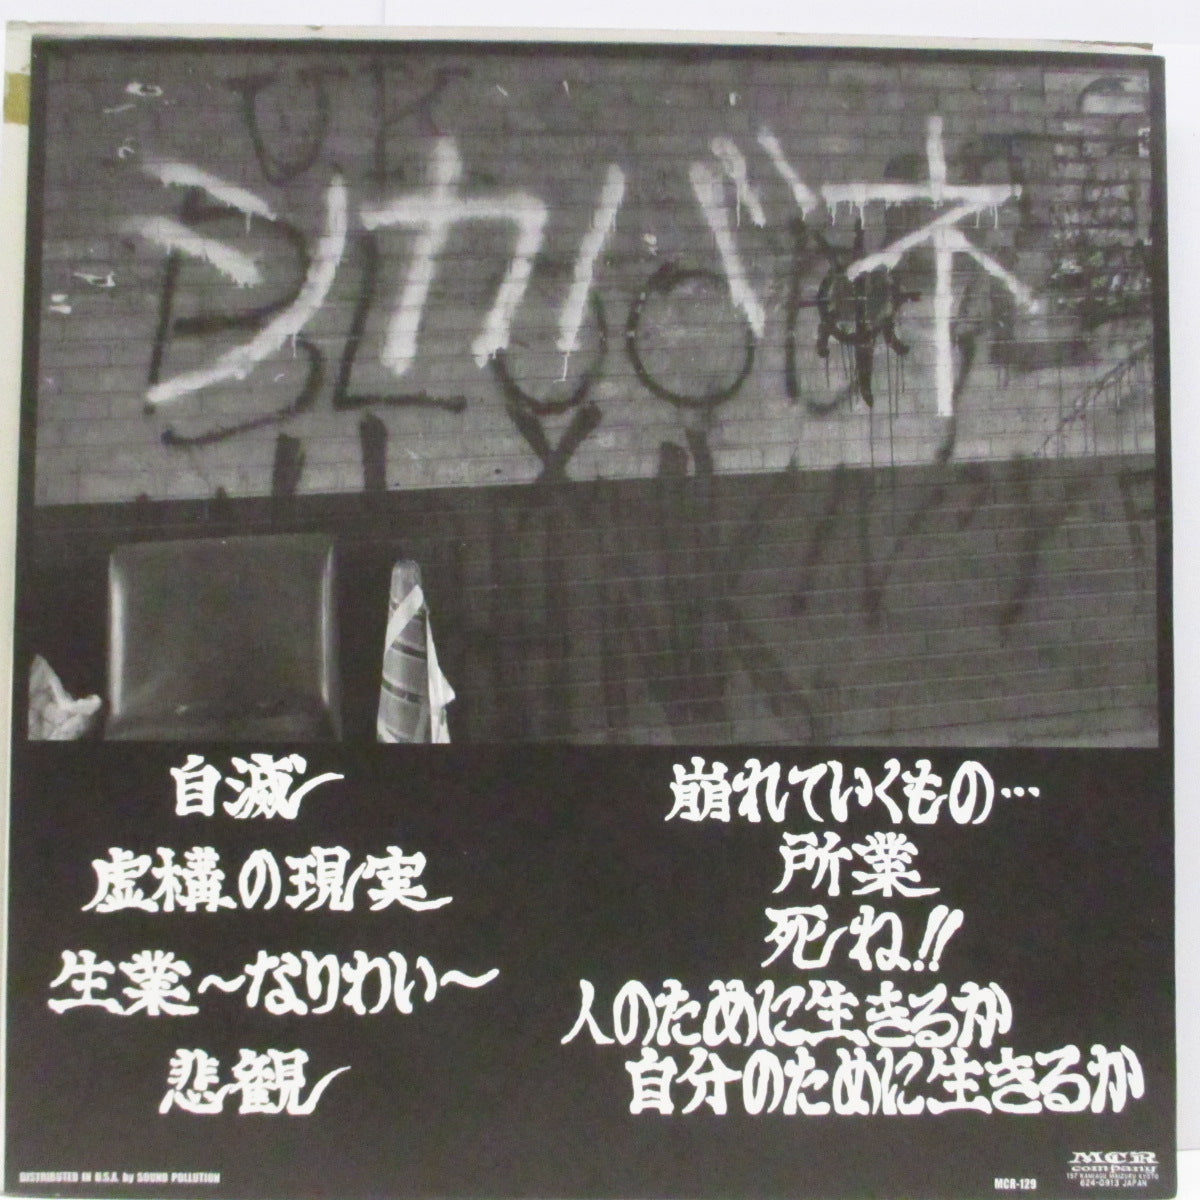 UK
シカバネ
BLOOD
自滅
虚構の現実
生業～なりわい～
悲観
崩れていくもの…
所業
死ね!!
人のために生きるか
自分のために生きるか
DISTRIBUTED IN U.S.A. by SOUND POLLUTION
MCR-129
MCR
company
157 KAMIAGU MAIZURU KYOTO
624-0913 JAPAN